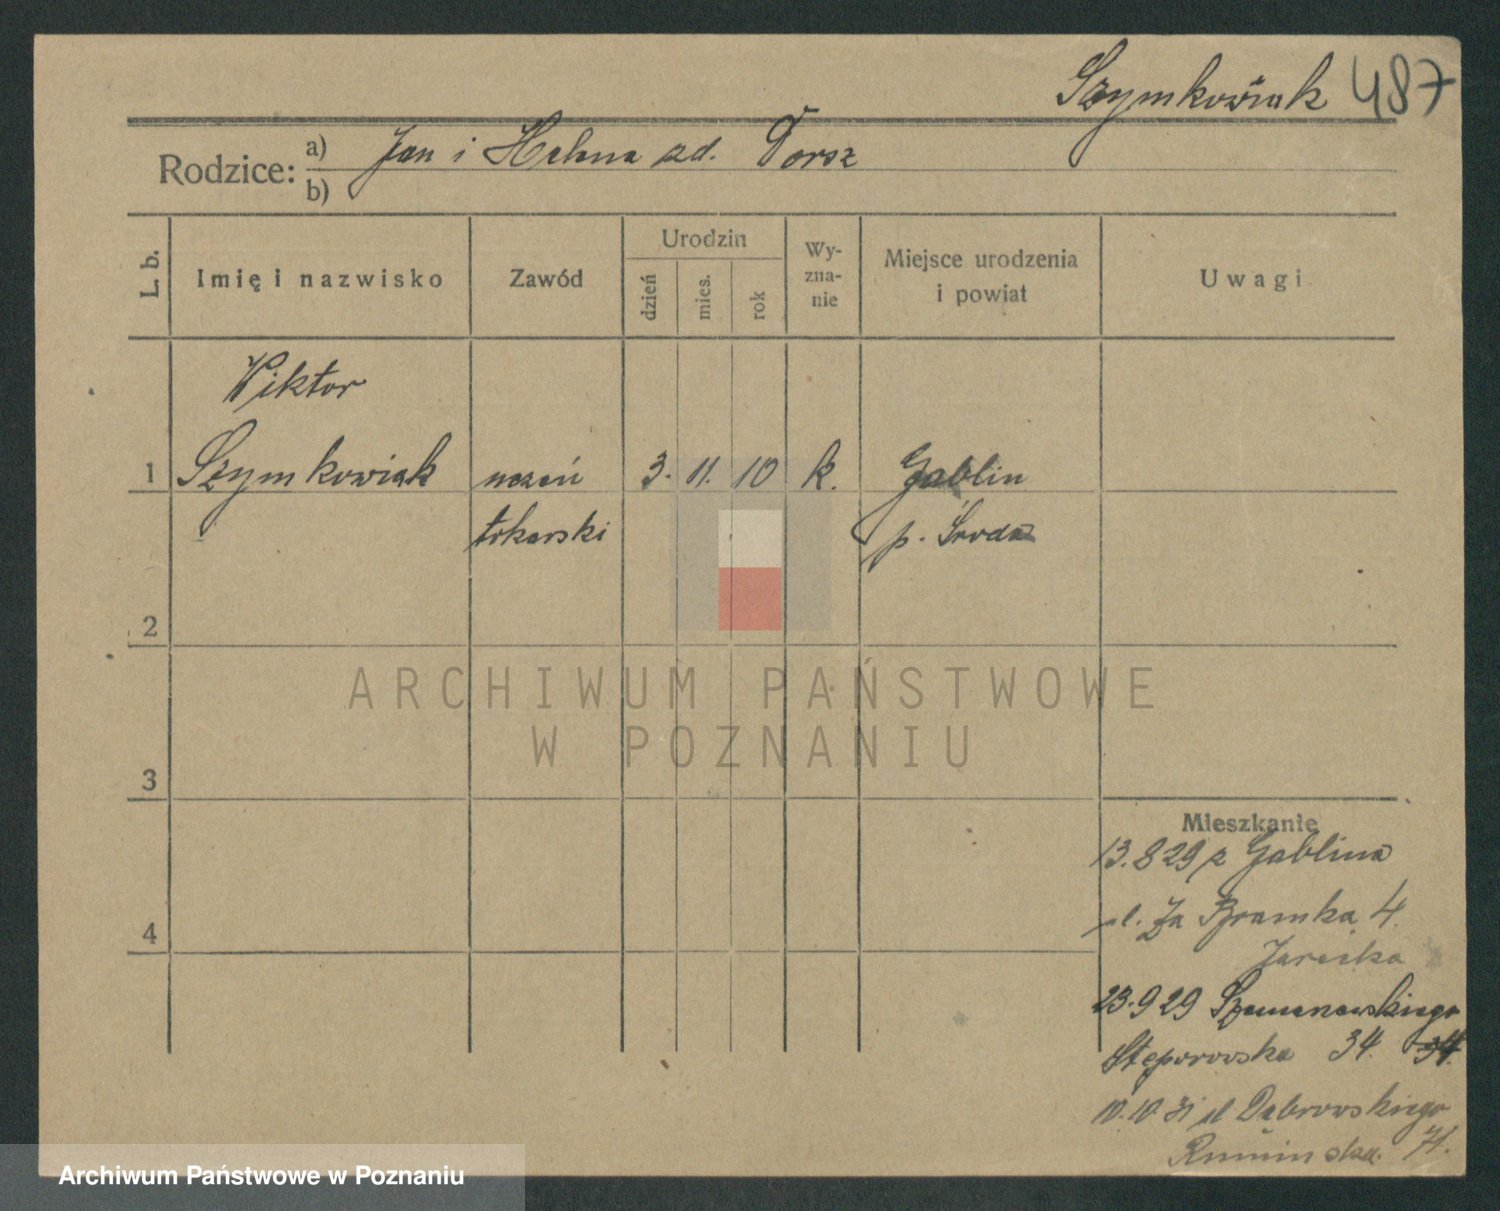 Szymkowiak 487
Rodzice: a) Jan i Helena zd. Dorsz
b)
L. b.
Imię i nazwisko
Zawód
Urodzin
dzień
mies.
rok
Wy-
zna-
nie
Miejsce urodzenia
i powiat
Uwagi
Wiktor
1 Szymkowiak uczeń 3. 11. 10 k. Gablin
tokarski p. Środa
2
ARCHIWUM PAŃSTWOWE
W POZNANIU
3
Mieszkanie
13.8 29 z Gablina
ul. Za Bramką 4.
4
Jarecka
23.9 29
34. 34.
10.10 31 ul Dąbrowskiego
71.
Archiwum Państwowe w Poznaniu